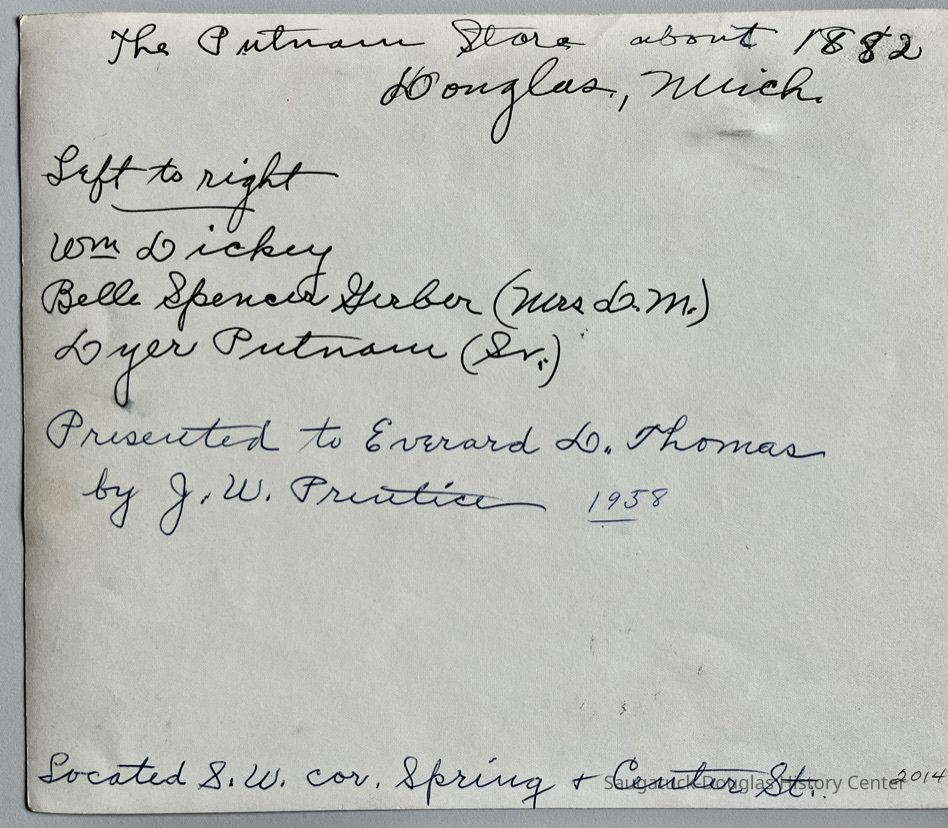 The Putnam Store about 1882
Douglas, Mich.
Left to right
Wm Dickey
Belle Spencer Gerber (Mrs D.M.)
Dyer Putnam (Sr.)
Presented to Everard D. Thomas
by J. W. Prentice 1958
Located S.W. cor. Spring + Center St. 2014
Saugatuck-Douglas History Center